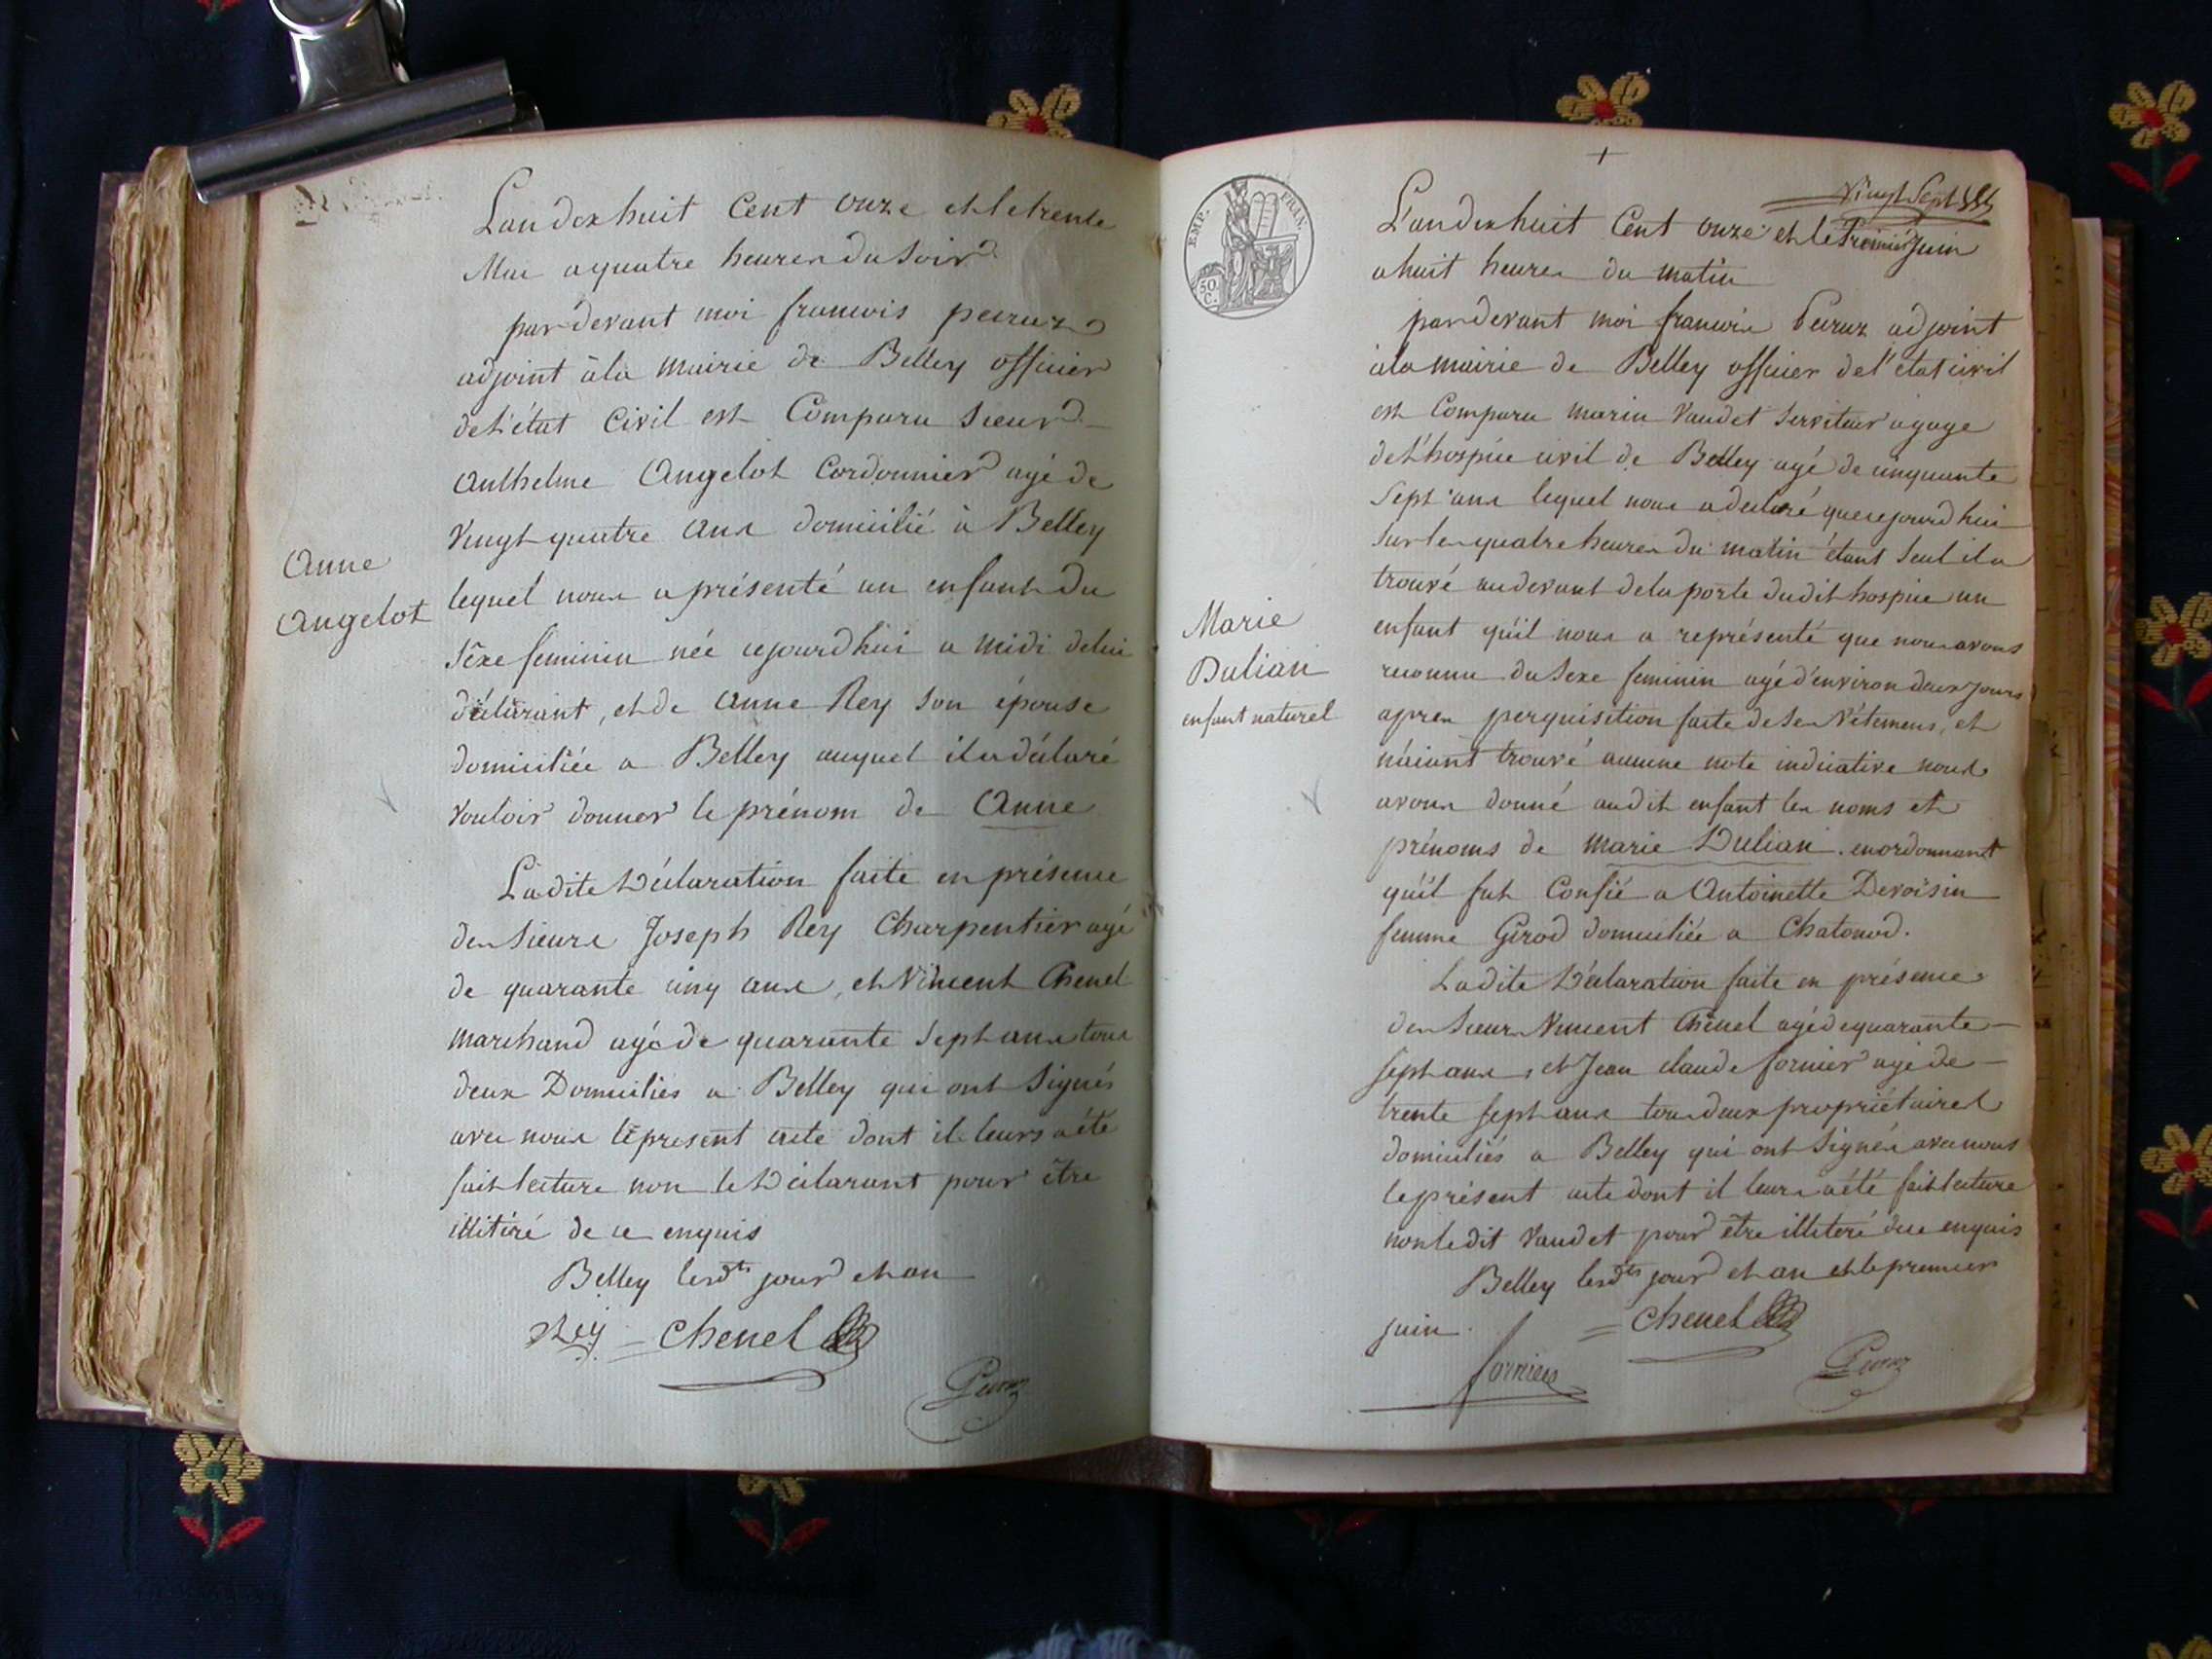 L'an dix huit Cent onze et le trente
Mai a quatre heures du Soir
pardevant moi francois peiruz
adjoint à la mairie de Belley officier
de l'état Civil est Comparu sieur
Anthelme Angelot Cordonnier agé de
vingt quatre ans domicilié à Belley
lequel nous a présenté un enfant du
sèxe feminin née cejourd'hui a midi de lui
déclarant, et de Anne Rey son épouse
domiciliée a Belley auquel il a déclaré
vouloir donner le prénom de Anne
Ladite Déclaration faite en présence
des sieurs Joseph Rey Charpentier agé
de quarante cinq ans, et Vincent Chenel
marchand agé de quarante sept ans tous
deux Domiciliés a Belley qui ont signés
avec nous le présent acte dont il leurs a été
fait lecture non le Déclarant pour être
illitéré de ce enquis
Belley lesdts jour et an
Rey = Chenel
Peiruz
Anne
Angelot
EMP. FRAN.
50 C.
Vingt Sept
L'an dix huit Cent onze et le Premier Juin
a huit heures du matin
pardevant moi francois Peiruz adjoint
à la mairie de Belley officier de l'état civil
est Comparu marin Vaudet serviteur à gage
de l'hospice civil de Belley agé de cinquante
sept ans lequel nous a déclaré que cejourd'hui
sur les quatre heures du matin étant seul il a
trouvé au devant de la porte dudit hospice un
enfant qu'il nous a représenté que nous avons
reconnu du sexe feminin agé d'environ deux jours
apres perquisition faite de ses Vétemens, et
n'aiant trouvé aucune note indicative nous
avons donné audit enfant les noms et
prénoms de marie Dulian. en ordonnant
qu'il fut Confié a Antoinette Devoisin
femme Girod domiciliée a Chatonod.
Ladite Déclaration faite en présence
des sieurs Vincent Chenel agé de quarante
sept ans, et Jean claude fornier agé de
trente sept ans tous deux propriétaires
domiciliés a Belley qui ont signés avec nous
le présent acte dont il leurs a été fait lecture
non ledit Vaudet pour être illiteré de ce enquis
Belley lesdts jour et an et le premier
juin.
= Chenel
fornier
Peiruz
Marie
Dulian
enfant naturel